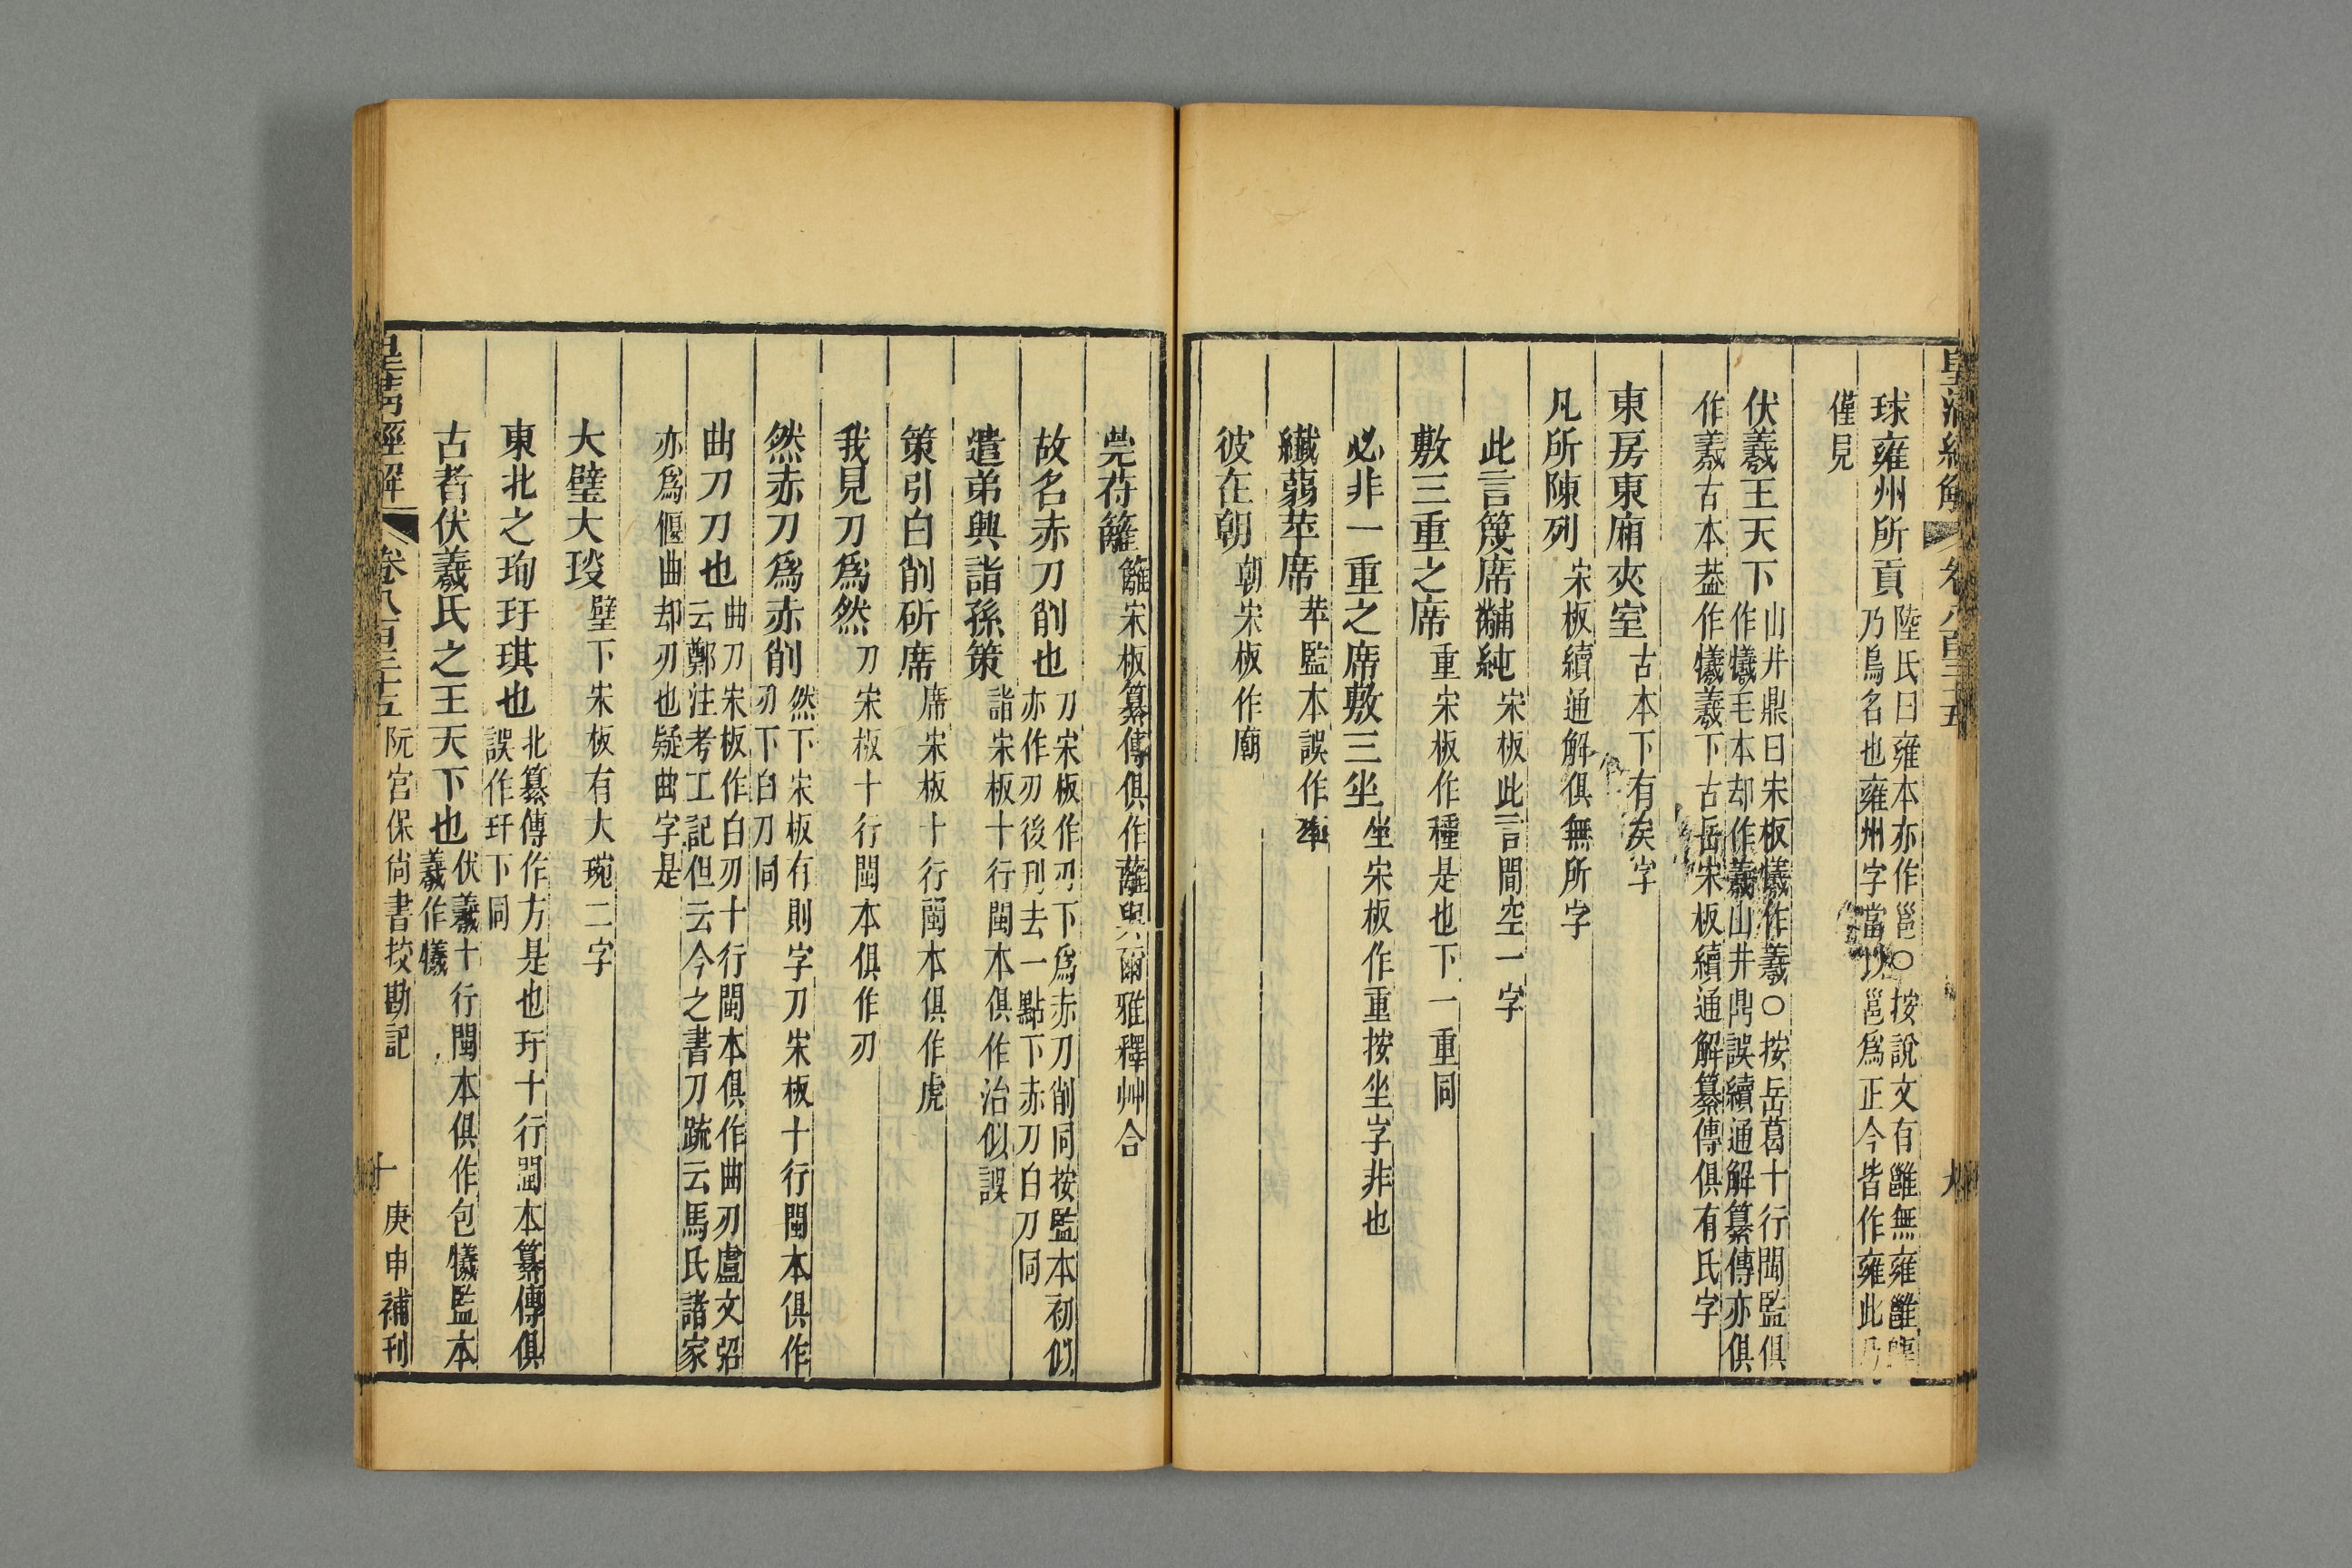 皇清經解 卷八百三十五 九
球雍州所貢 陸氏曰雍本亦作邕○按說文有雝無雍雝
乃鳥名也雍州字當以邕爲正今皆作雍此乃
僅見
伏羲王天下 山井鼎曰宋板犧作羲○按岳葛十行閩監俱
作犧毛本却作羲山井鼎誤續通解纂傳亦俱
作羲古本葢作犧羲下古岳宋板續通解纂傳俱有氏字
東房東廂夾室 古本下有矣字
凡所陳列 宋板續通解俱無所字
此言篾席黼純 宋板此言閒空一字
敷三重之席 重宋板作種是也下一重同
必非一重之席敷三坐 坐宋板作重按坐字非也
纎蒻苹席 苹監本誤作
彼在朝 朝宋板作廟
莞苻蘺 蘺宋板纂傳俱作蘺與爾雅釋艸合
故名赤刀削也 刀宋板作刃下爲赤刀削同按監本初似
亦作刃後刊去一點下赤刀白刀同
遣弟興詣孫策 詣宋板十行閩本俱作治似誤
策引白削斫席 席宋板十行閩本俱作虎
我見刀爲然 刀宋板十行閩本俱作刃
然赤刀爲赤削 然下宋板有則字刀宋板十行閩本俱作
刃下白刀同
曲刀刀也 曲刀宋板作白刃十行閩本俱作曲刃盧文弨
云鄭注考工記但云今之書刀疏云馬氏諸家
亦爲偃曲却刃也疑曲字是
大璧大琰 璧下宋板有大琬二字
東北之珣玗琪也 北纂傳作方是也玗十行閩本纂傳俱
誤作玕下同
古者伏羲氏之王天下也 伏羲十行閩本俱作包犧監本
羲作犧
皇清經解 卷八百三十五 阮宮保尙書挍勘記 十 庚申補刊